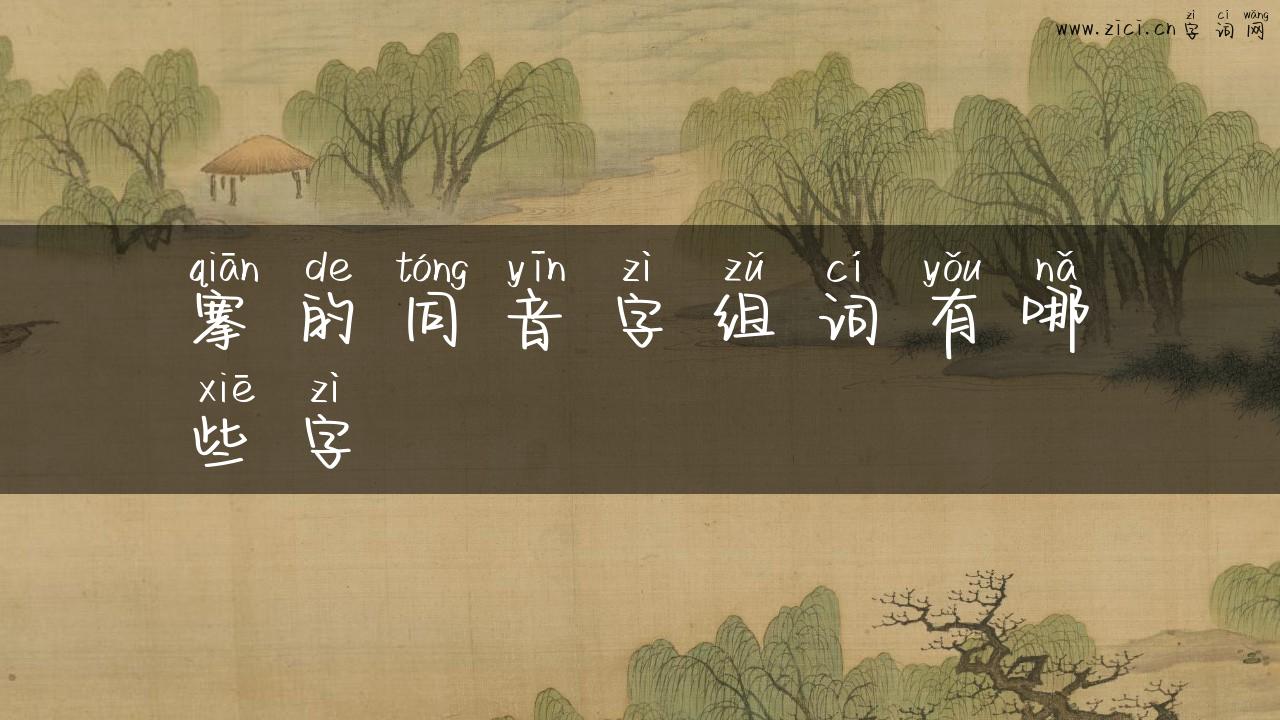 zì cí wǎng
www.zici.cn字词网
qiān de tóng yīn zì zǔ cí yǒu nǎ
搴的同音字组词有哪
xiē zì
些字